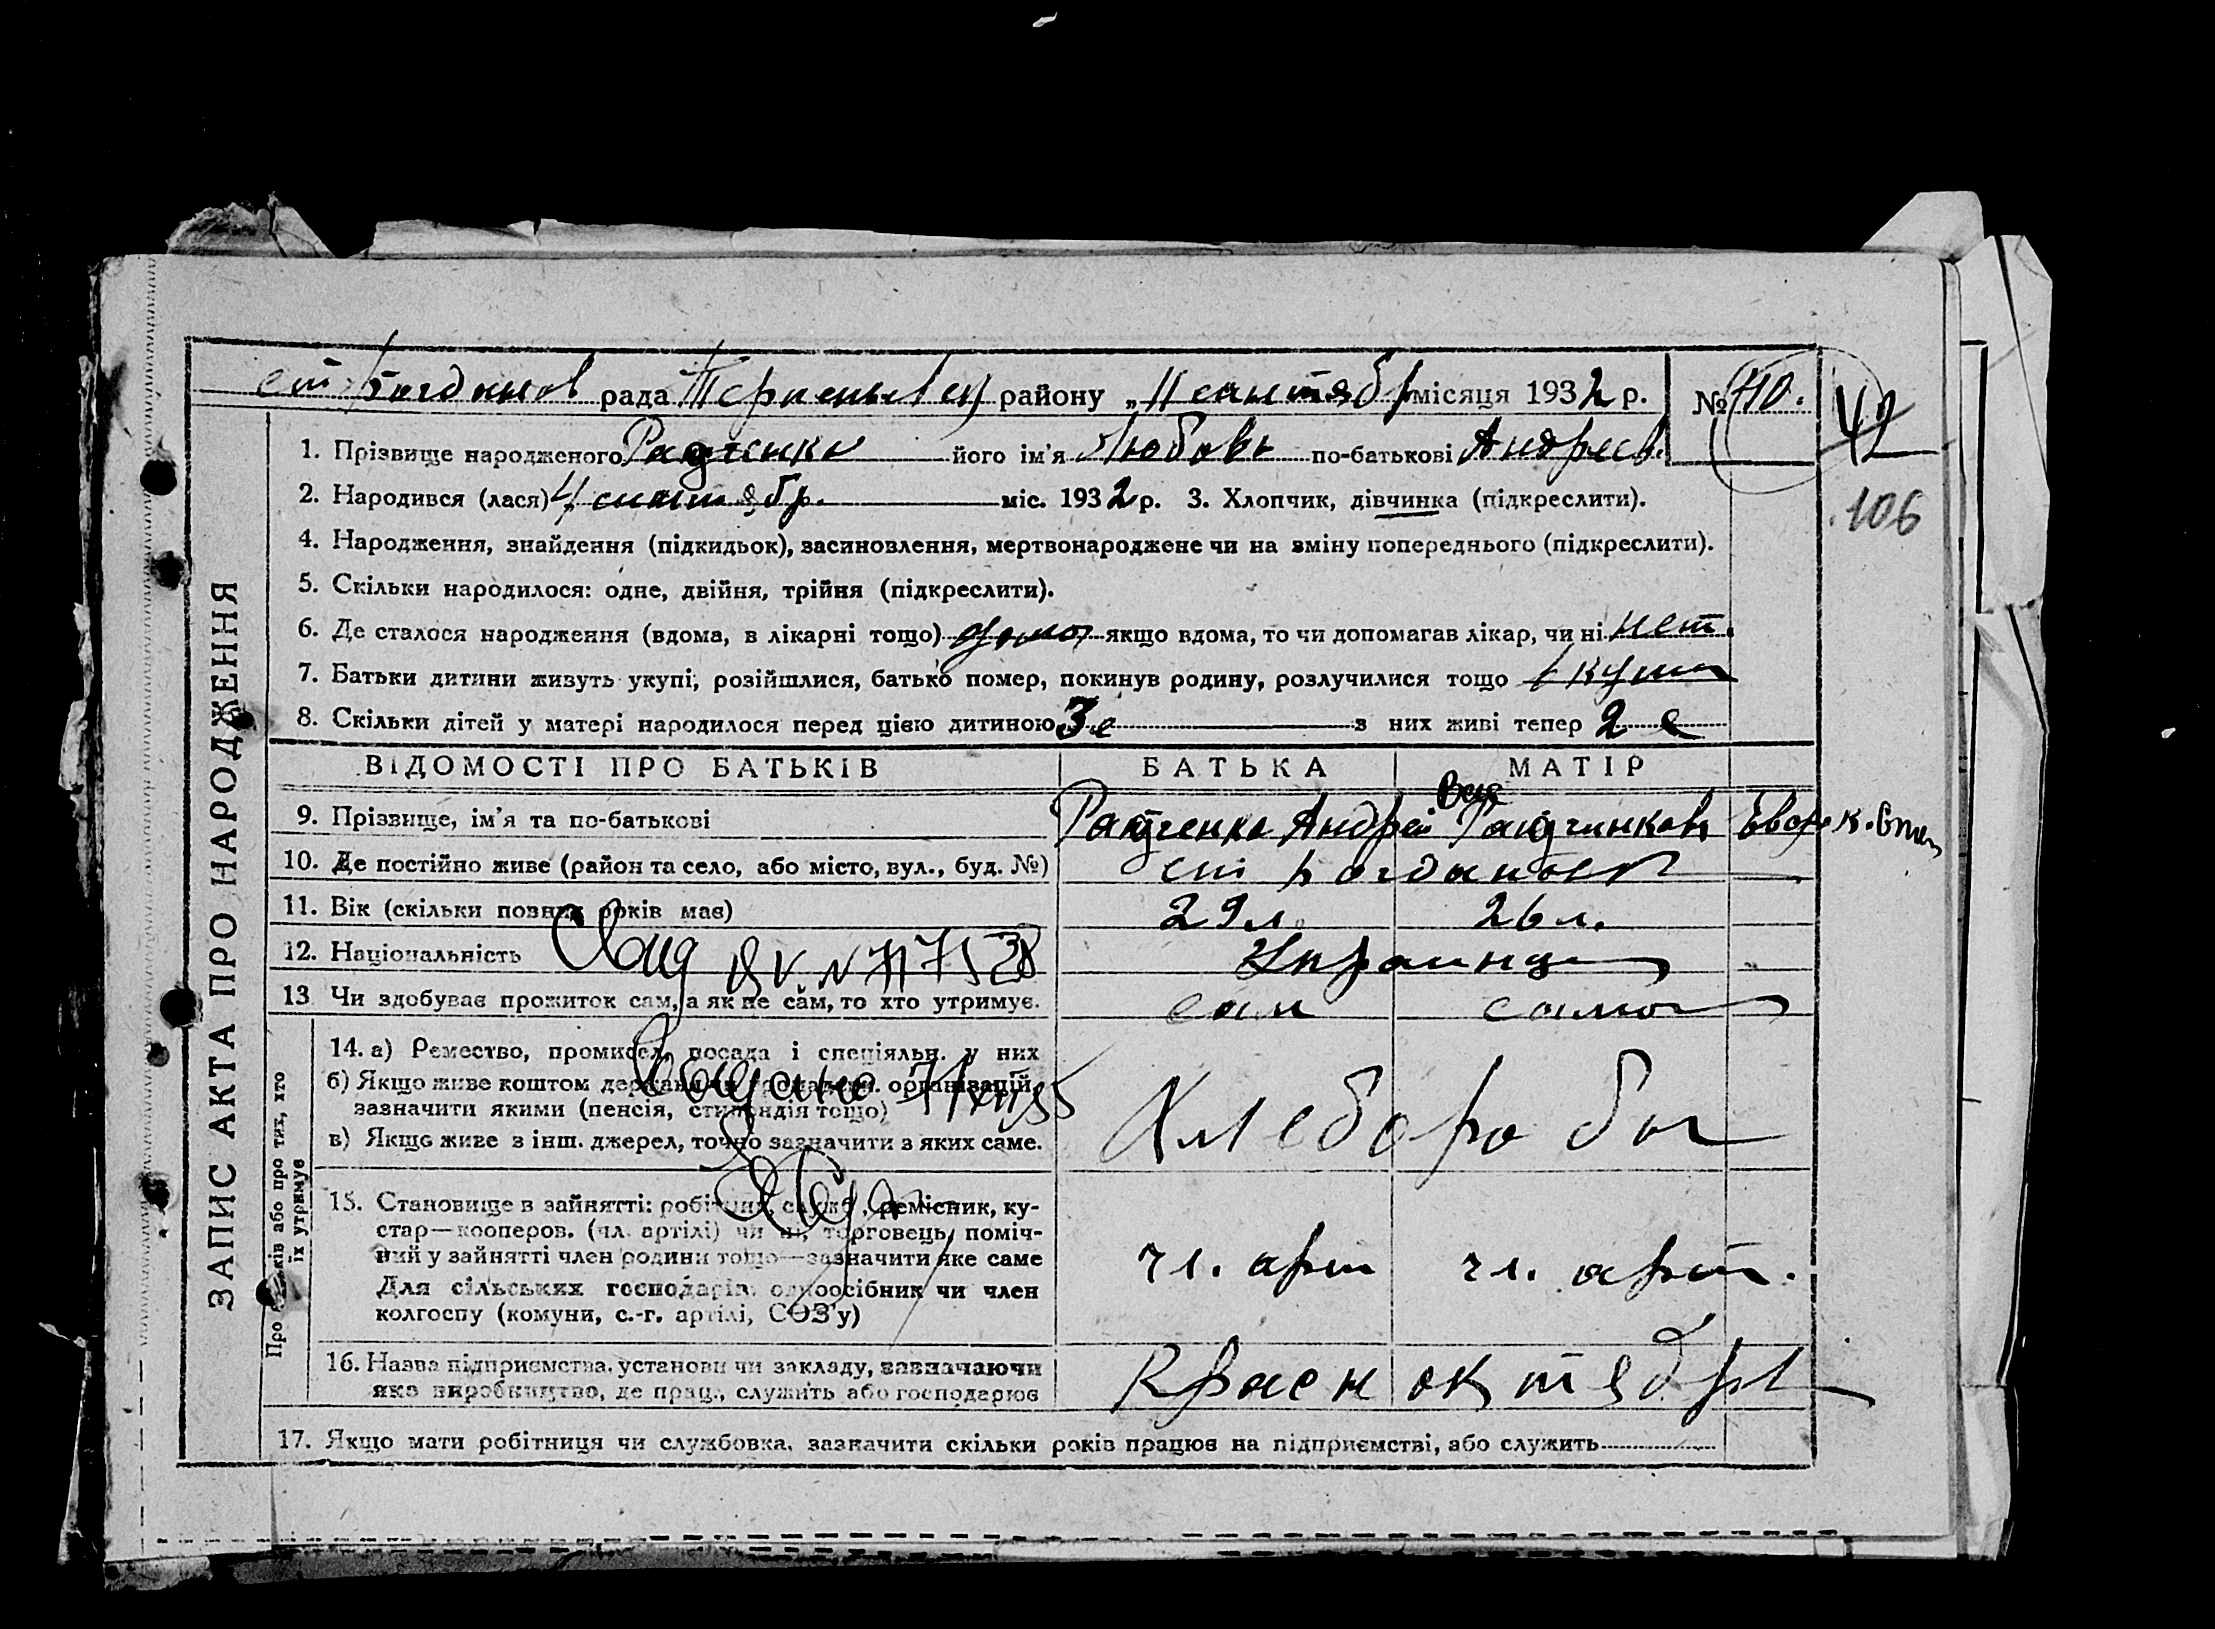 ст. Богданов рада Терпеньевск району „11 сентября місяця 1932 р. № 40.
42
1. Прізвище народженого Радченко його ім'я Любовь по-батькові Андреев.
2. Народився (лася) 4 сентября. міс. 1932 р. 3. Хлопчик, дівчинка (підкреслити).
106
4. Народження, знайдення (підкидьок), засиновлення, мертвонароджене чи на зміну попереднього (підкреслити).
5. Скільки народилося: одне, двійня, трійня (підкреслити).
6. Де сталося народження (вдома, в лікарні тощо) дома якщо вдома, то чи допомагав лікар, чи ні нет.
7. Батьки дитини живуть укупі, розійшлися, батько помер, покинув родину, розлучилися тощо вкупи
8. Скільки дітей у матері народилося перед цією дитиною 3е з них живі тепер 2е
ЗАПИС АКТА ПРО НАРОДЖЕННЯ
ВІДОМОСТІ ПРО БАТЬКІВ БАТЬКА МАТІР
9. Прізвище, ім'я та по-батькові Радченко Андрей Радченкова
10. Де постійно живе (район та село, або місто, вул., буд. №) ст Богдановк
11. Вік (скільки повних років має) 29 л. 26 л.
12. Національність Украинцы
13 Чи здобуває прожиток сам, а як не сам, то хто утримує. сам сама
Про батьків або про тих, хто
їх утримує
14. а) Ремество, промисел, посада і спеціяльн. у них Хлеборобы
б) Якщо живе коштом держави чи громадськ. організацій,
зазначити якими (пенсія, стипендія тощо)
в) Якщо живе з інш. джерел, точно зазначити з яких саме.
15. Становище в зайнятті: робітник, служб., ремісник, ку-
стар—кооперов. (чл. артілі) чи ні, торговець, поміч-
ний у зайнятті член родини тощо—зазначити яке саме чл. арт чл. арт.
Для сільських господарів: одноосібник чи член
колгоспу (комуни, с.-г. артілі, СОЗ'у)
16. Назва підприємства, установи чи закладу, зазначаючи Красн октябрь
яке виробництво, де прац., служить або господарює
17. Якщо мати робітниця чи службовка, зазначити скільки років працює на підприємстві, або служить